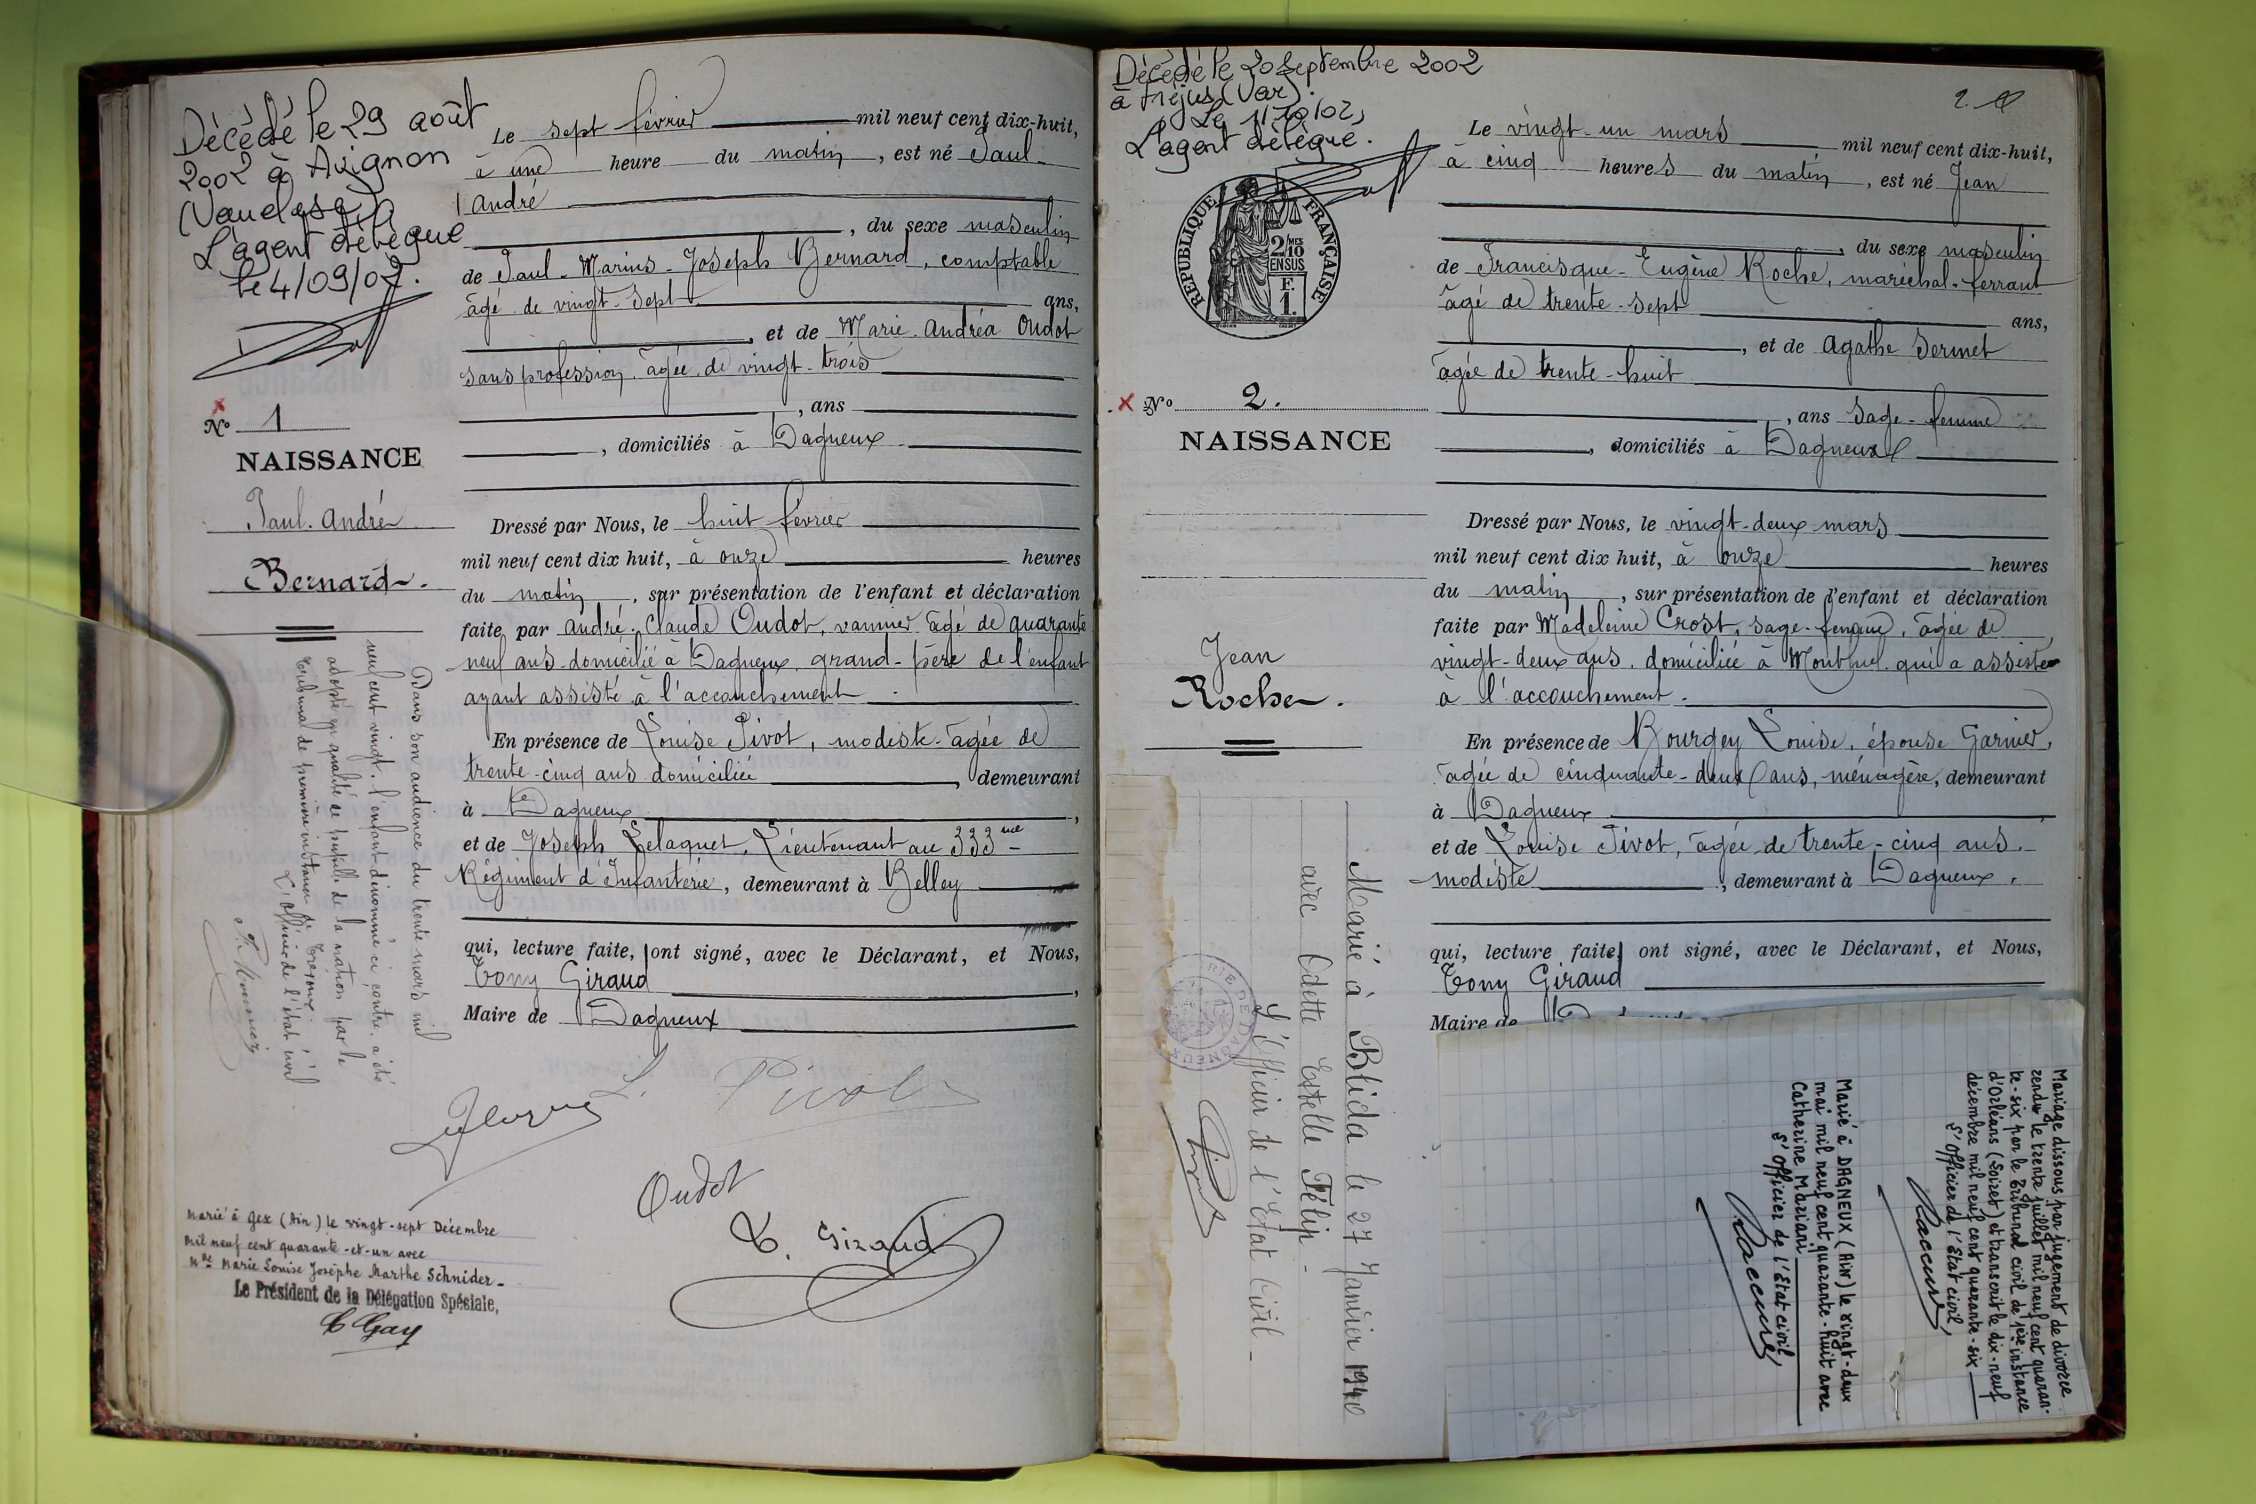 Décédé le 29 août
2002 à Avignon
(Vaucluse)
L'agent délégué
le 4/09/02.
N° 1
NAISSANCE
Paul André
Bernard.
Le sept février mil neuf cent dix-huit,
à une heure du matin, est né Paul
André
, du sexe masculin
de Paul Marius Joseph Bernard, comptable
âgé de vingt-sept ans,
, et de Marie Andréa Oudot
sans profession, âgée de vingt-trois
, ans
, domiciliés à Dagneux
Dressé par Nous, le huit février
mil neuf cent dix huit, à onze heures
du matin, sur présentation de l'enfant et déclaration
faite par André Claude Oudot, vannier âgé de quarante
neuf ans domicilié à Dagneux, grand-père de l'enfant
ayant assisté à l'accouchement
En présence de Louise Pivot, modiste âgée de
trente-cinq ans domiciliée, demeurant
à Dagneux,
et de Joseph Lelaquet, Lieutenant au 333me
Régiment d'Infanterie, demeurant à Belley
qui, lecture faite, ont signé, avec le Déclarant, et Nous,
Tony Giraud,
Maire de Dagneux
L. Pivot
Oudot
T. Giraud
Dans son audience du trente mars mil
neuf cent vingt, l'enfant dénommé ci-contre a été
adopté en qualité de pupille de la nation par le
tribunal de première instance de Trévoux.
L'officier de l'état civil
Marié à Gex (Ain) le vingt-sept Décembre
mil neuf cent quarante-et-un avec
Mlle Marie Louise Josèphe Marthe Schnider
Le Président de la Délégation Spéciale,
C Gay
Décédé le 20 septembre 2002
à Fréjus (Var).
Le 1/10/02,
L'agent délégué.
RÉPUBLIQUE FRANÇAISE
2/10 MES
EN SUS
F.
1.
2.
N° 2.
NAISSANCE
Jean
Roche.
Le vingt-un mars mil neuf cent dix-huit,
à cinq heures du matin, est né Jean
, du sexe masculin
de Francisque Eugène Roche, maréchal-ferrant
âgé de trente-sept ans,
, et de Agathe Sermet
âgée de trente-huit
, ans sage-femme
, domiciliés à Dagneux
Dressé par Nous, le vingt-deux mars
mil neuf cent dix huit, à onze heures
du matin, sur présentation de l'enfant et déclaration
faite par Madeleine Crost, sage-femme, âgée de
vingt-deux ans, domiciliée à Montluel qui a assisté
à l'accouchement.
En présence de Bourgey Louise, épouse Garnier,
âgée de cinquante-deux ans, ménagère, demeurant
à Dagneux,
et de Louise Pivot, âgée de trente-cinq ans.
modiste, demeurant à Dagneux.
qui, lecture faite, ont signé, avec le Déclarant, et Nous,
Tony Giraud
Maire de
Marié à Blida le 27 Janvier 1940
avec Odette Estelle Félip
L'Officier de l'Etat Civil
MAIRIE DE DAGNEUX
Mariage dissous par jugement de divorce
rendu le trente juillet mil neuf cent quaran-
te-six par le Tribunal civil de 1ère instance
d'Orléans (Loiret) et transcrit le dix-neuf
décembre mil neuf cent quarante-six
L'Officier de l'Etat civil,
Marié à DAGNEUX (Ain) le vingt-deux
mai mil neuf cent quarante-huit avec
Catherine Mariani
L'Officier de l'Etat civil,